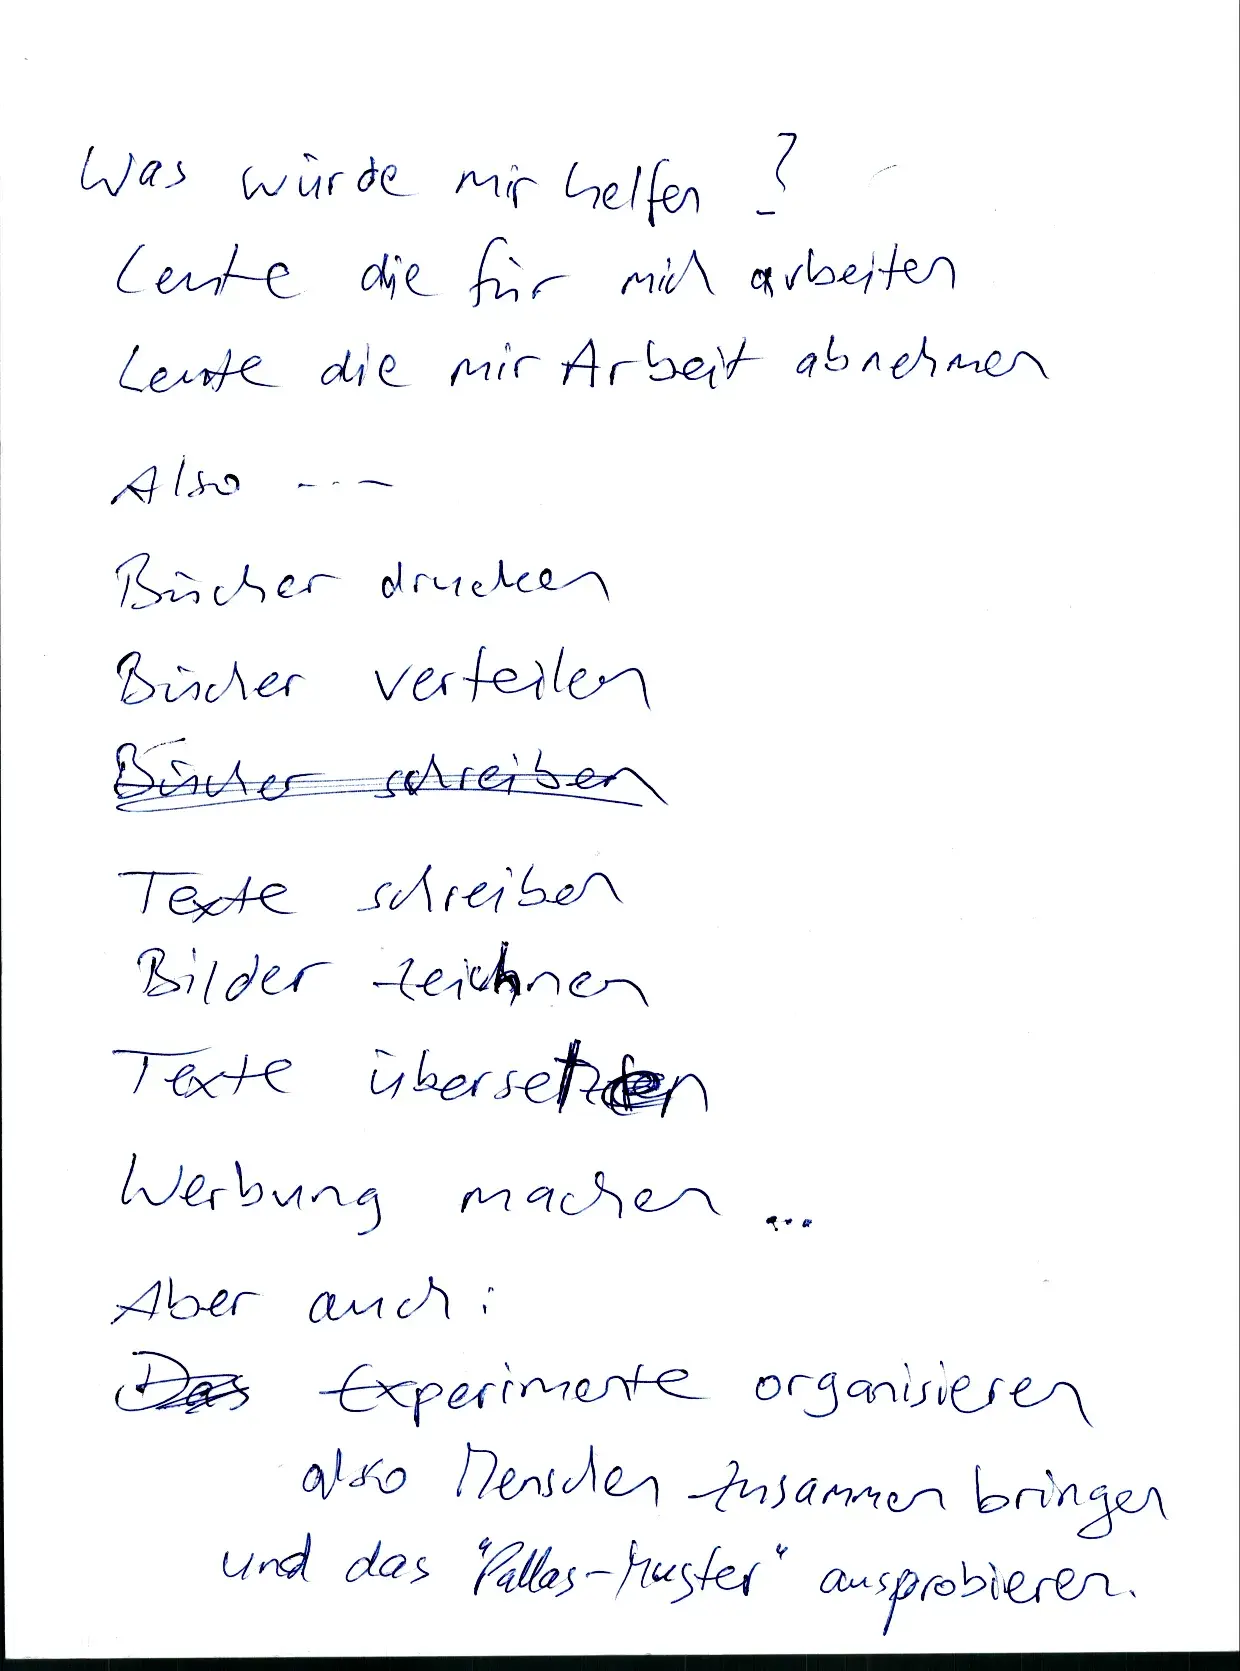 Was würde mir helfen ?
Leute die für mich arbeiten
Leute die mir Arbeit abnehmen
Also ---
Bücher drucken
Bücher verteilen
Bücher schreiben
Texte schreiben
Bilder zeichnen
Texte übersetzen
Werbung machen ...
Aber auch :
Das Experimente organisieren
also Menschen zusammen bringen
und das "Pallas-Muster" ausprobieren.